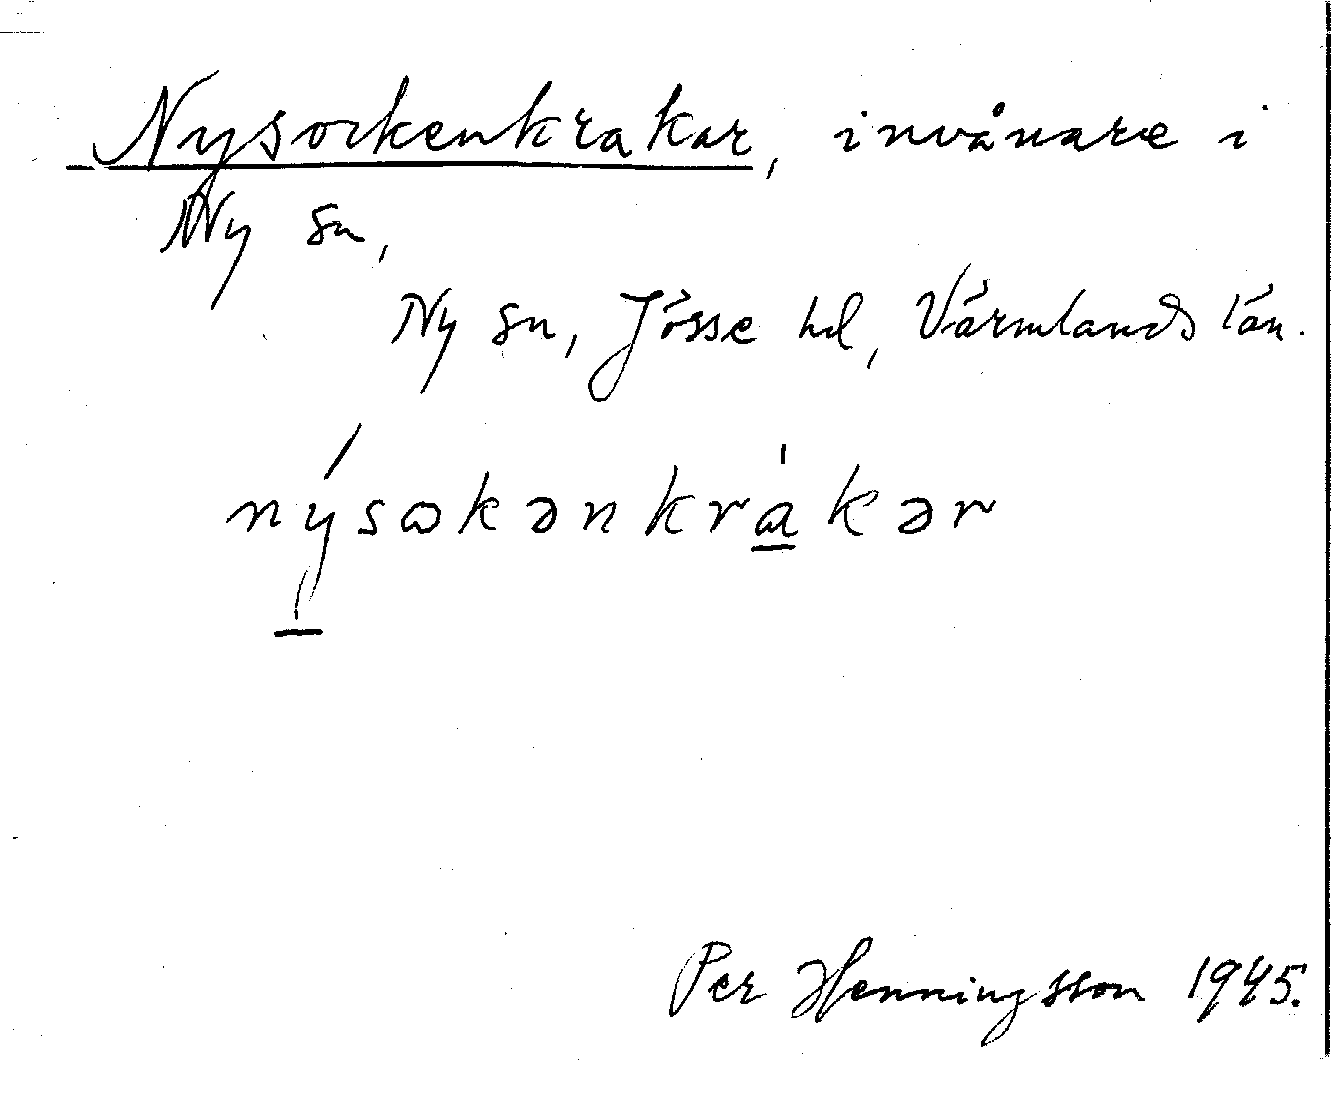 Nysockenkrakar, invånare i
Ny sn,
Ny sn, Jösse hd, Värmlands län.
nýsωkənkrákər
Per Henningsson 1945.